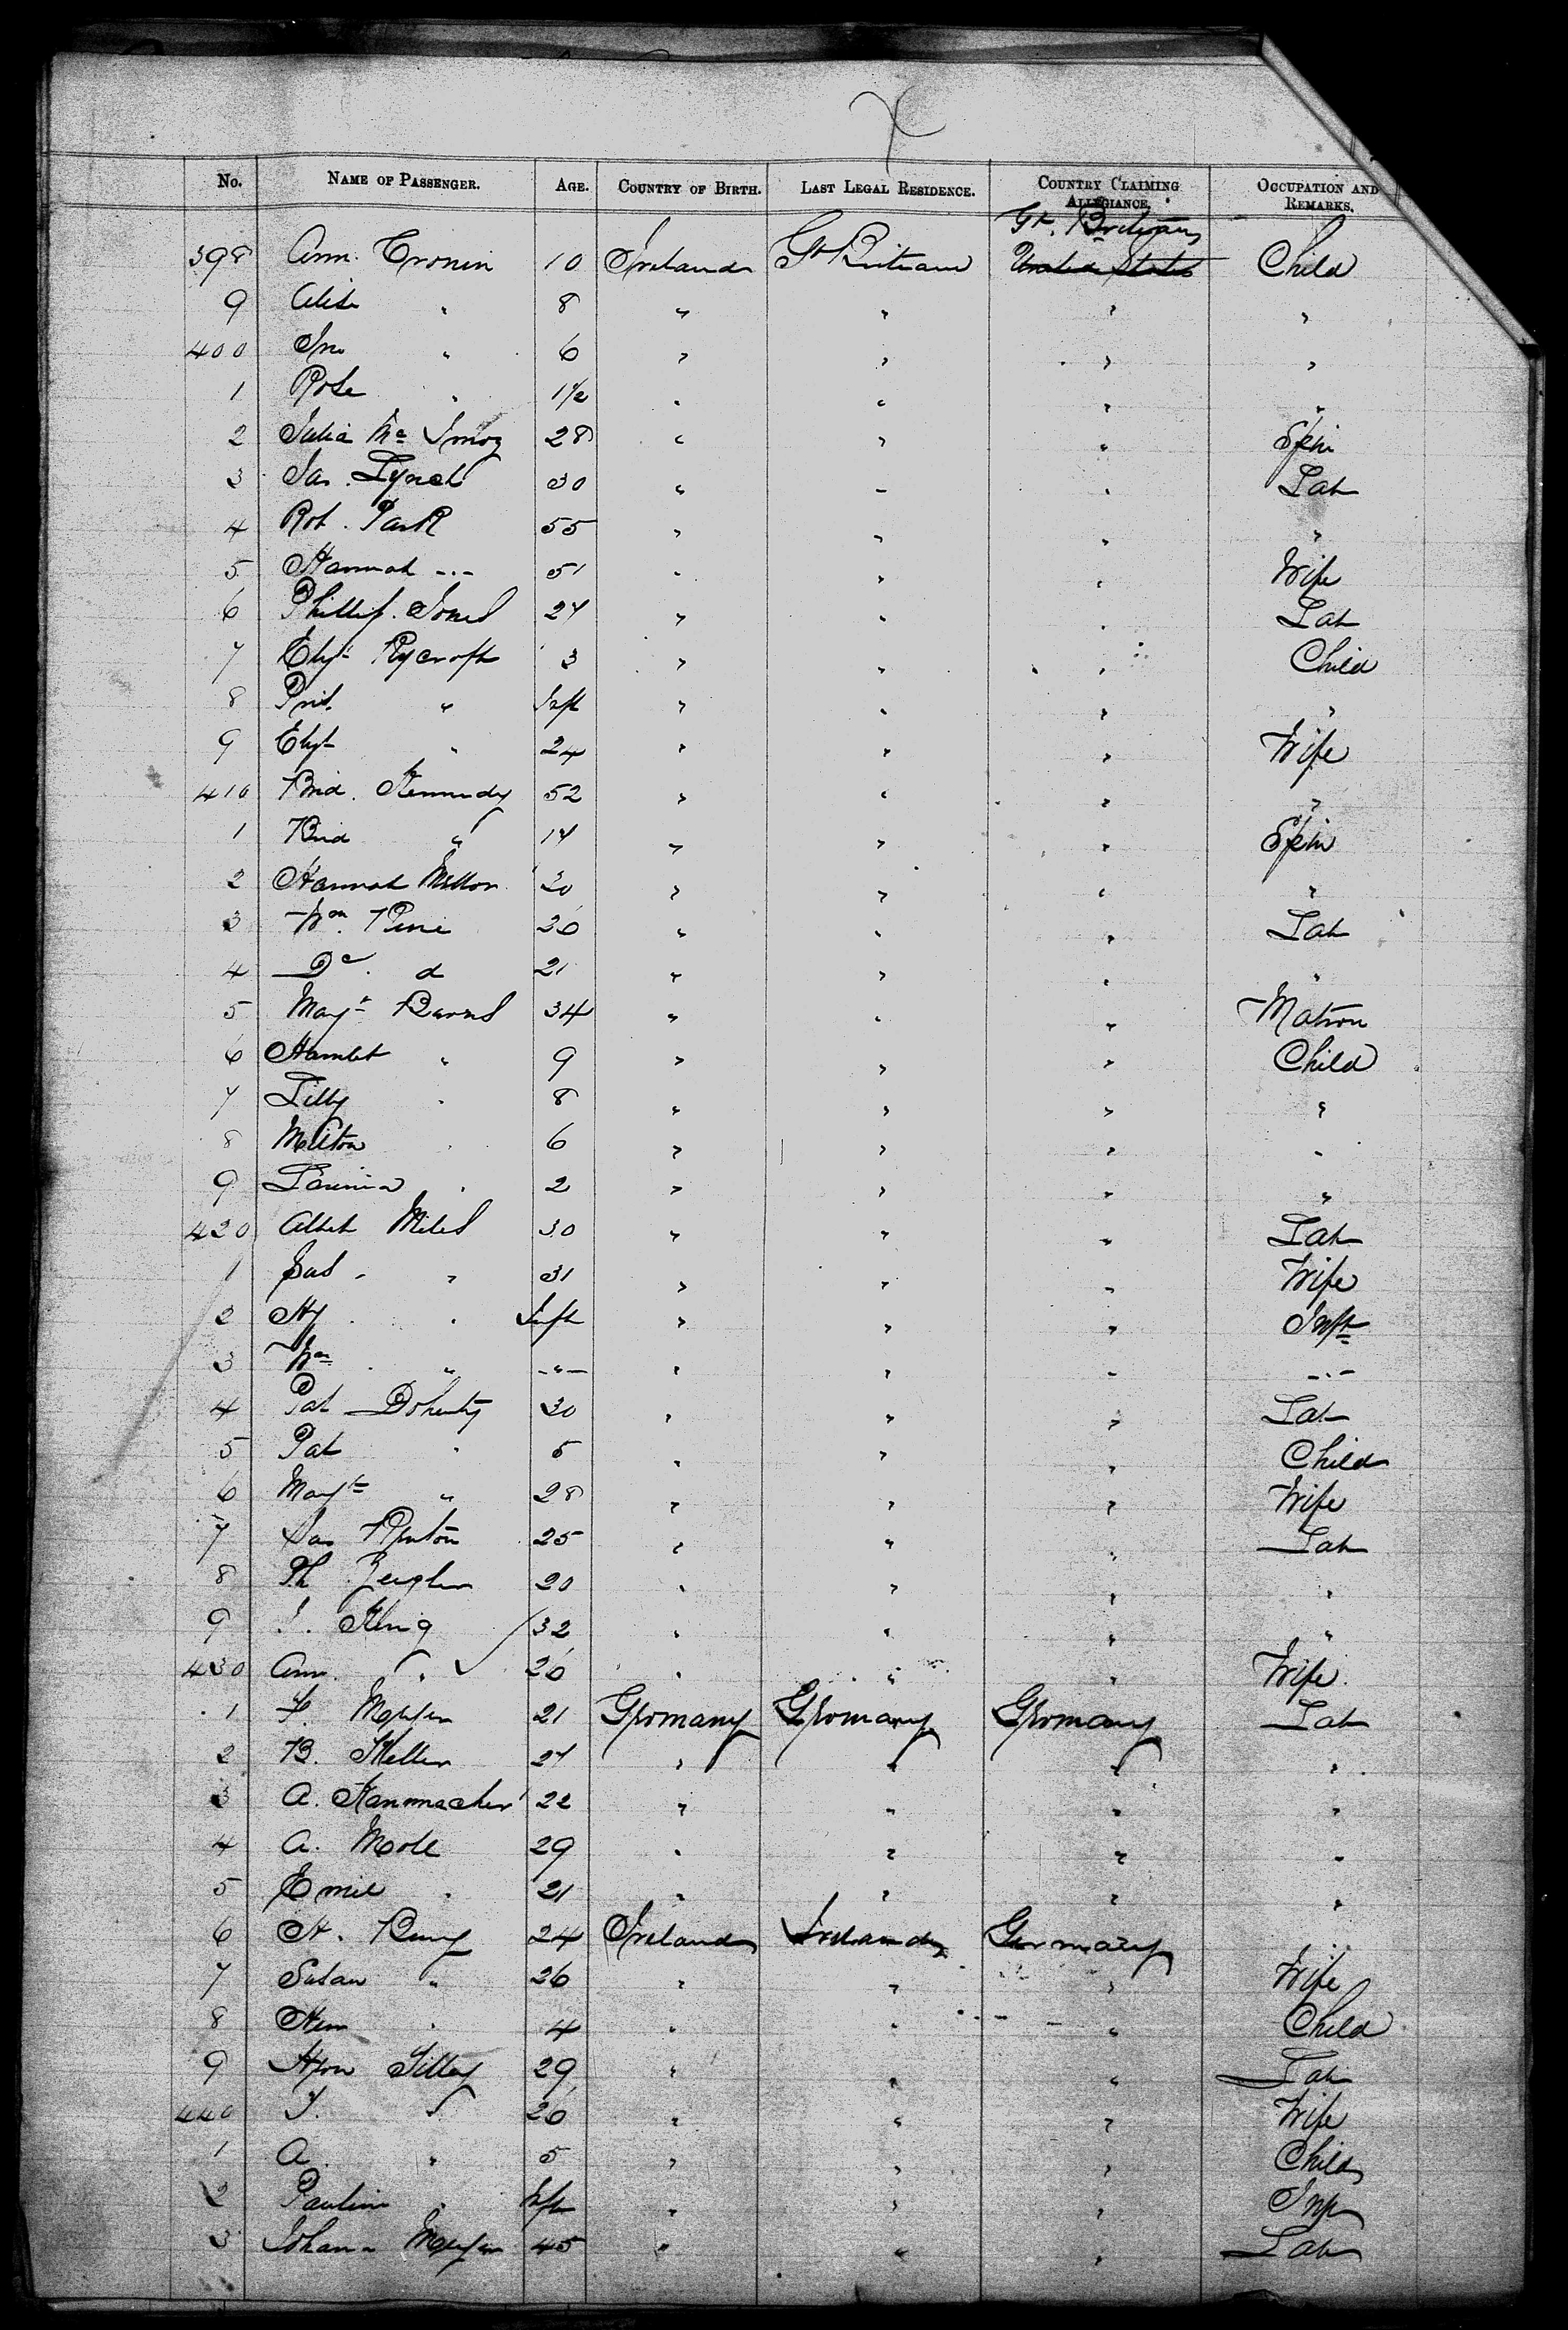 No. NAME OF PASSENGER. AGE. COUNTRY OF BIRTH. LAST LEGAL RESIDENCE. COUNTRY CLAIMING ALLEGIANCE. OCCUPATION AND REMARKS.
Gt. Britain
398 Ann. Cronin 10 Ireland Gt Britain United States Child
9 " 8 " " " "
400 Jno " 6 " " " "
1 Rose " 1½ " " " "
2 Julia Mc 28 " " " Spin
3 Jas. Lynch 30 " " " Lab
4 Rob. Park 55 " " " "
5 Hannah -"- 51 " " " Wife
6 Phillip. Jones 24 " " " Lab
7 Elizt Rycroft 3 " " " Child
8 " Inft " " " "
9 Elizt " 24 " " " Wife
410 Brid. Kennedy 52 " " " "
1 Brid " 14 " " " Spin
2 Hannah " " " "
3 Wm. " " " Lab
4 Do. d 21 " " " "
5 Magt Barns 34 " " " Matron
6 Hamlet " 9 " " " Child
7 Lilly " 8 " " " "
8 Milton " 6 " " " "
9 " 2 " " " "
420 Albet Miles 30 " " " Lab
1 " 31 " " " Wife
2 Hy " Inft " " " Inft
3 Wm " -"- " " " -"-
4 Pat Doherty 30 " " " Lab
5 Pat " 5 " " " Child
6 Magt " 28 " " " Wife
7 25 " " " Lab
8 20 " " " "
9 King 32 " " " "
430 Ann. " 26 " " " Wife.
1 21 Germany Germany Germany Lab
2 B. Keller 24 " " " "
3 A. Hanmacher 22 " " " "
4 A. Moll 29 " " " "
5 Emil " 21 " " " "
6 H. 24 Ireland Ireland Germany "
7 Susan " 26 " " " Wife
8 " 4 " " " Child
9 29 " " " Lab
440 " 26 " " " Wife
1 A. " 5 " " " Child
2 Paulin " Inft " " " Inf
3 Johann 45 " " " Lab